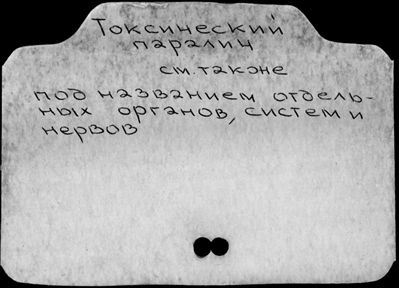 Токсический
паралич
см. также
под названием отдель-
ных органов, систем и
нервов